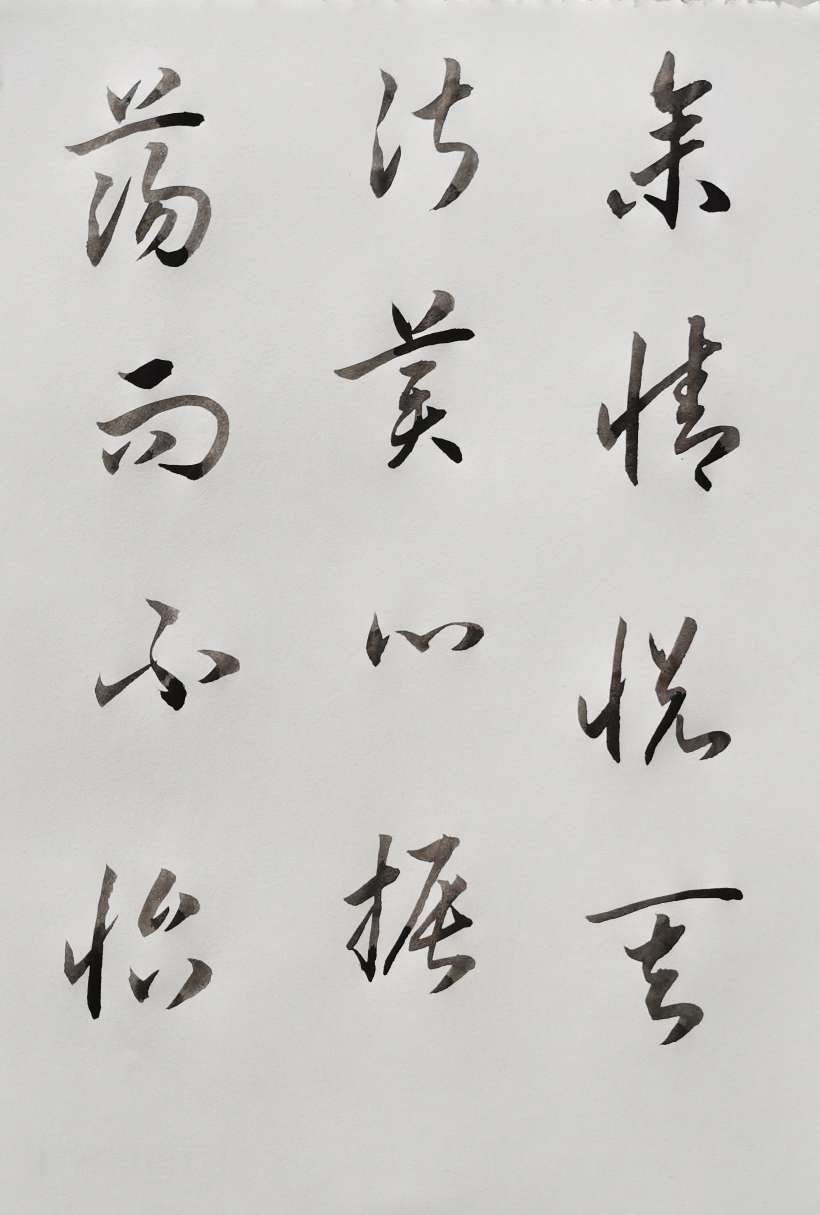 余情悅其
淑美心振
蕩而不怡